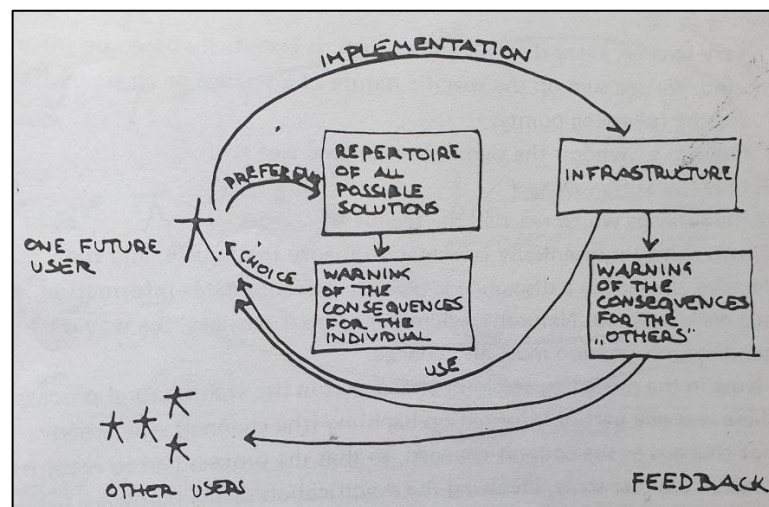 IMPLEMENTATION
PREFERENCE
REPERTOIRE
OF ALL
POSSIBLE
SOLUTIONS
INFRASTRUCTURE
ONE FUTURE
USER
CHOICE
WARNING
OF THE
CONSEQUENCES
FOR THE
INDIVIDUAL
WARNING
OF THE
CONSEQUENCES
FOR THE
„OTHERS"
USE
OTHER USERS
FEEDBACK